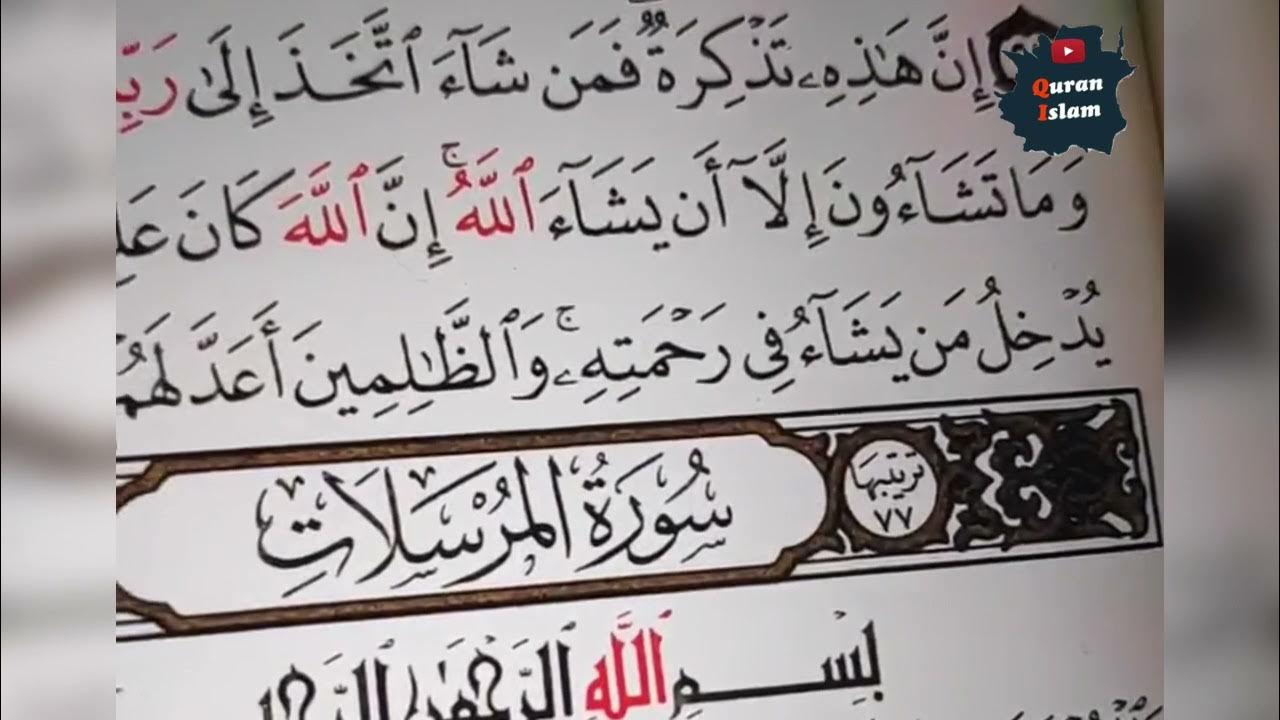 إِنَّ هَٰذِهِۦ تَذْكِرَةٌ ۖ فَمَن شَآءَ ٱتَّخَذَ إِلَىٰ رَبِّ
وَمَا تَشَآءُونَ إِلَّآ أَن يَشَآءَ ٱللَّهُ ۚ إِنَّ ٱللَّهَ كَانَ عَلِ
يُدْخِلُ مَن يَشَآءُ فِى رَحْمَتِهِۦ ۚ وَٱلظَّٰلِمِينَ أَعَدَّ لَهُمْ
سُورَةُ المُرْسَلَاتِ
ترتيبها
٧٧
بِسْمِ ٱللَّهِ ٱلرَّحْمَٰنِ
Quran
Islam